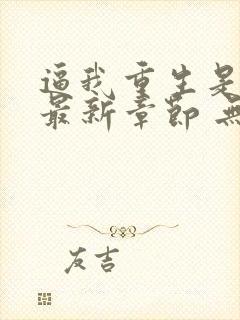 逼我重生是
最新章节 無
友吉